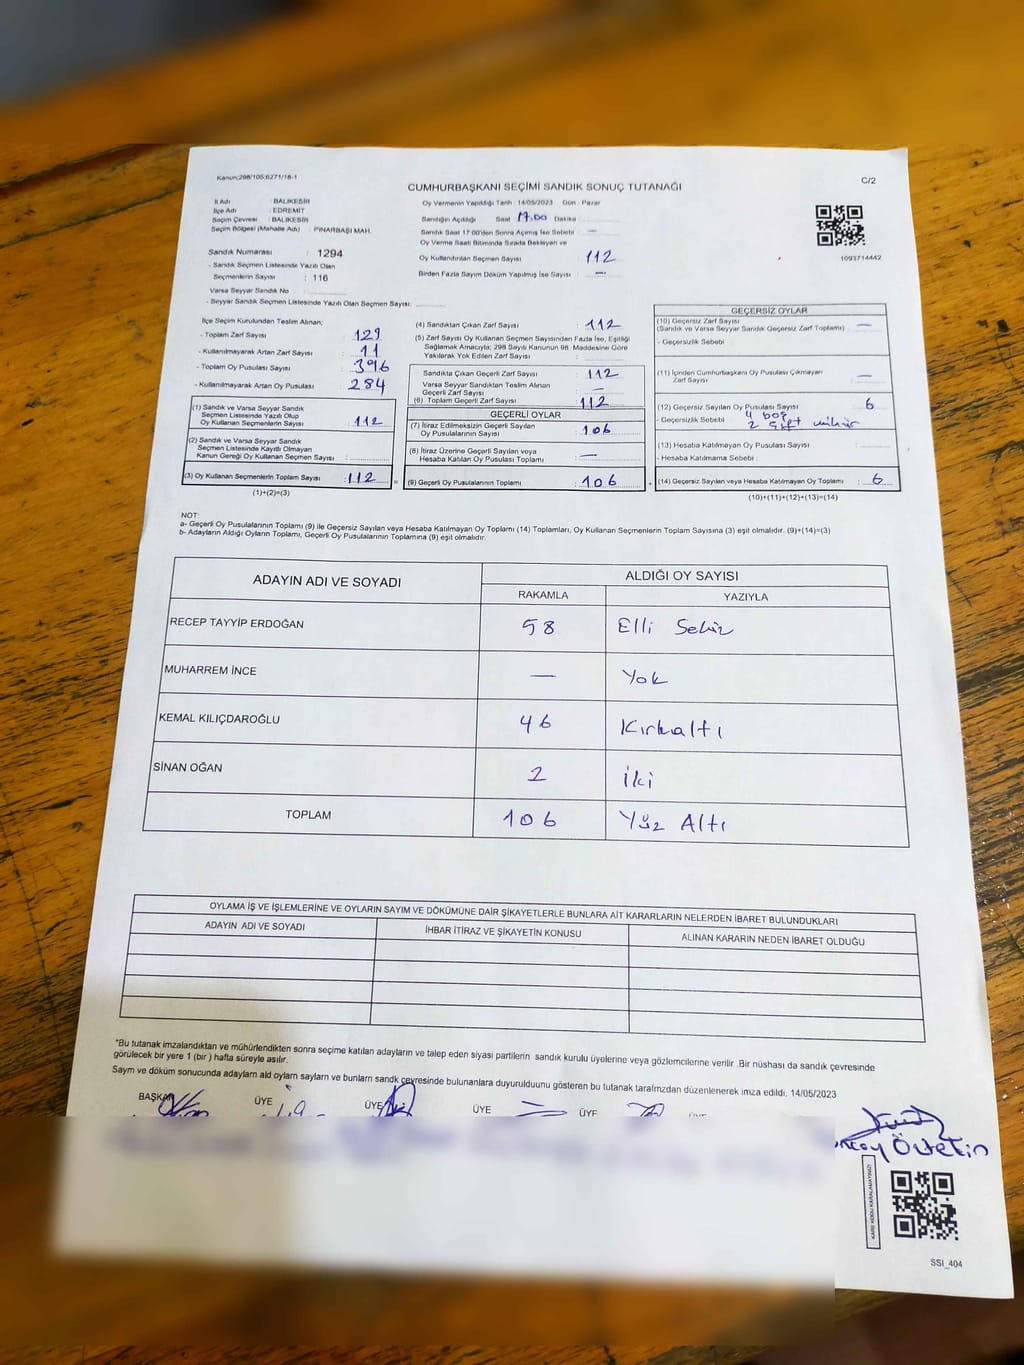 Kanun:298/105;6271/18-1
C/2
CUMHURBAŞKANI SEÇİMİ SANDIK SONUÇ TUTANAĞI
İl Adı : BALIKESİR
İlçe Adı : EDREMİT
Seçim Çevresi : BALIKESİR
Seçim Bölgesi (Mahalle Adı) : PINARBAŞI MAH.
Sandık Numarası : 1294
- Sandık Seçmen Listesinde Yazılı Olan
Seçmenlerin Sayısı : 116
Varsa Seyyar Sandık No :
- Seyyar Sandık Seçmen Listesinde Yazılı Olan Seçmen Sayısı:
Oy Vermenin Yapıldığı Tarih : 14/05/2023 Gün : Pazar
Sandığın Açıldığı Saat 17.00 Dakika
Sandık Saat 17:00'den Sonra Açılmış İse Sebebi : —
Oy Verme Saati Bitiminde Sırada Bekleyen ve
Oy Kullandırılan Seçmen Sayısı : 112
Birden Fazla Sayım Döküm Yapılmış İse Sayısı : —
1093714442
İlçe Seçim Kurulundan Teslim Alınan;
- Toplam Zarf Sayısı : 129
- Kullanılmayarak Artan Zarf Sayısı : 11
- Toplam Oy Pusulası Sayısı : 396
- Kullanılmayarak Artan Oy Pusulası : 284
(1) Sandık ve Varsa Seyyar Sandık
Seçmen Listesinde Yazılı Olup
Oy Kullanan Seçmenlerin Sayısı : 112
(2) Sandık ve Varsa Seyyar Sandık
Seçmen Listesinde Kayıtlı Olmayan
Kanun Gereği Oy Kullanan Seçmen Sayısı :
(3) Oy Kullanan Seçmenlerin Toplam Sayısı : 112
(1)+(2)=(3)
(4) Sandıktan Çıkan Zarf Sayısı : 112
(5) Zarf Sayısı Oy Kullanan Seçmen Sayısından Fazla İse, Eşitliği
Sağlamak Amacıyla; 298 Sayılı Kanunun 98. Maddesine Göre
Yakılarak Yok Edilen Zarf Sayısı :
Sandıkta Çıkan Geçerli Zarf Sayısı : 112
Varsa Seyyar Sandıktan Teslim Alınan
Geçerli Zarf Sayısı : —
(6) Toplam Geçerli Zarf Sayısı : 112
GEÇERLİ OYLAR
(7) İtiraz Edilmeksizin Geçerli Sayılan
Oy Pusulalarının Sayısı : 106
(8) İtiraz Üzerine Geçerli Sayılan veya
Hesaba Katılan Oy Pusulası Toplamı : —
(9) Geçerli Oy Pusulalarının Toplamı : 106
GEÇERSİZ OYLAR
(10) Geçersiz Zarf Sayısı
(Sandık ve Varsa Seyyar Sandık Geçersiz Zarf Toplamı) : —
- Geçersizlik Sebebi
(11) İçinden Cumhurbaşkanı Oy Pusulası Çıkmayan
Zarf Sayısı : —
(12) Geçersiz Sayılan Oy Pusulası Sayısı : 6
- Geçersizlik Sebebi : 4 boş
2 çift mühür
(13) Hesaba Katılmayan Oy Pusulası Sayısı :
- Hesaba Katılmama Sebebi :
(14) Geçersiz Sayılan veya Hesaba Katılmayan Oy Toplamı : 6
(10)+(11)+(12)+(13)=(14)
NOT:
a- Geçerli Oy Pusulalarının Toplamı (9) ile Geçersiz Sayılan veya Hesaba Katılmayan Oy Toplamı (14) Toplamları, Oy Kullanan Seçmenlerin Toplam Sayısına (3) eşit olmalıdır. (9)+(14)=(3)
b- Adayların Aldığı Oyların Toplamı, Geçerli Oy Pusulalarının Toplamına (9) eşit olmalıdır.
ADAYIN ADI VE SOYADI ALDIĞI OY SAYISI
RAKAMLA YAZIYLA
RECEP TAYYİP ERDOĞAN 58 Elli Sekiz
MUHARREM İNCE — Yok
KEMAL KILIÇDAROĞLU 46 Kırkaltı
SİNAN OĞAN 2 iki
TOPLAM 106 Yüz Altı
OYLAMA İŞ VE İŞLEMLERİNE VE OYLARIN SAYIM VE DÖKÜMÜNE DAİR ŞİKAYETLERLE BUNLARA AİT KARARLARIN NELERDEN İBARET BULUNDUKLARI
ADAYIN ADI VE SOYADI İHBAR İTİRAZ VE ŞİKAYETİN KONUSU ALINAN KARARIN NEDEN İBARET OLDUĞU
"Bu tutanak imzalandıktan ve mühürlendikten sonra seçime katılan adayların ve talep eden siyasi partilerin sandık kurulu üyelerine veya gözlemcilerine verilir .Bir nüshası da sandık çevresinde
görülecek bir yere 1 (bir ) hafta süreyle asılır.
Sayım ve döküm sonucunda adayların ald oyların sayların ve bunların sandk çevresinde bulunanlara duyurulduunu gösteren bu tutanak tarafmzdan düzenlenerek imza edildi. 14/05/2023
BAŞKAN ÜYE ÜYE ÜYE ÜYE
KARE KODU KARALAMAYINIZ!
SSI_404